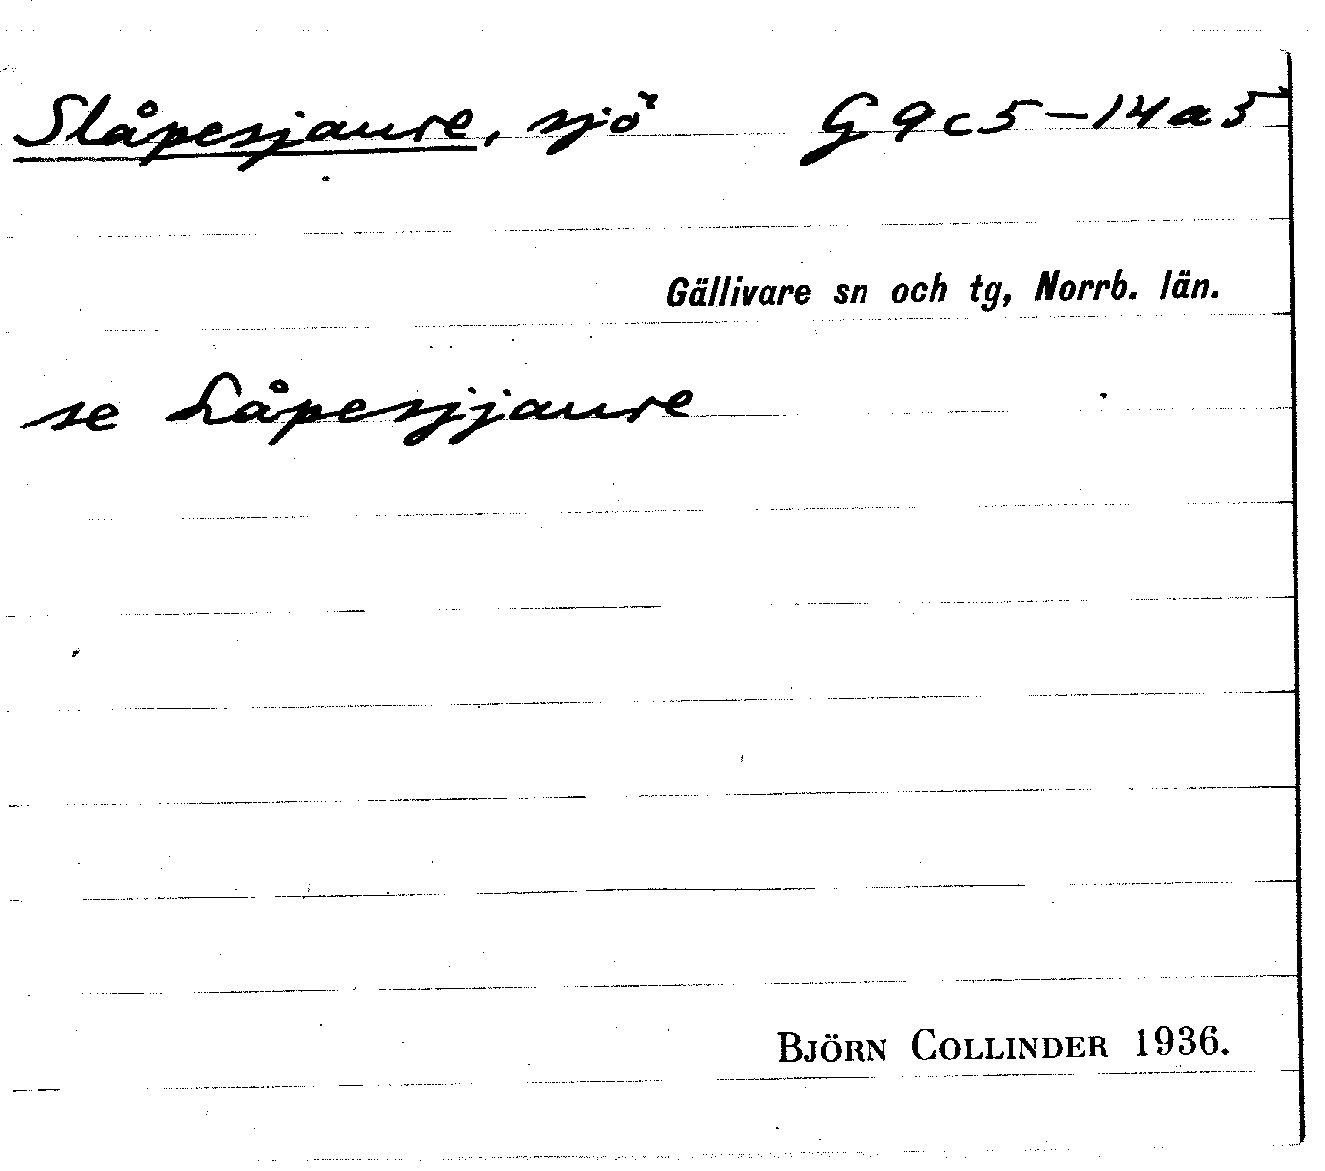 Slåpesjaure, sjö G 9c5-14a5
Gällivare sn och tg, Norrb. län.
se Låpesjjaure
BJÖRN COLLINDER 1936.